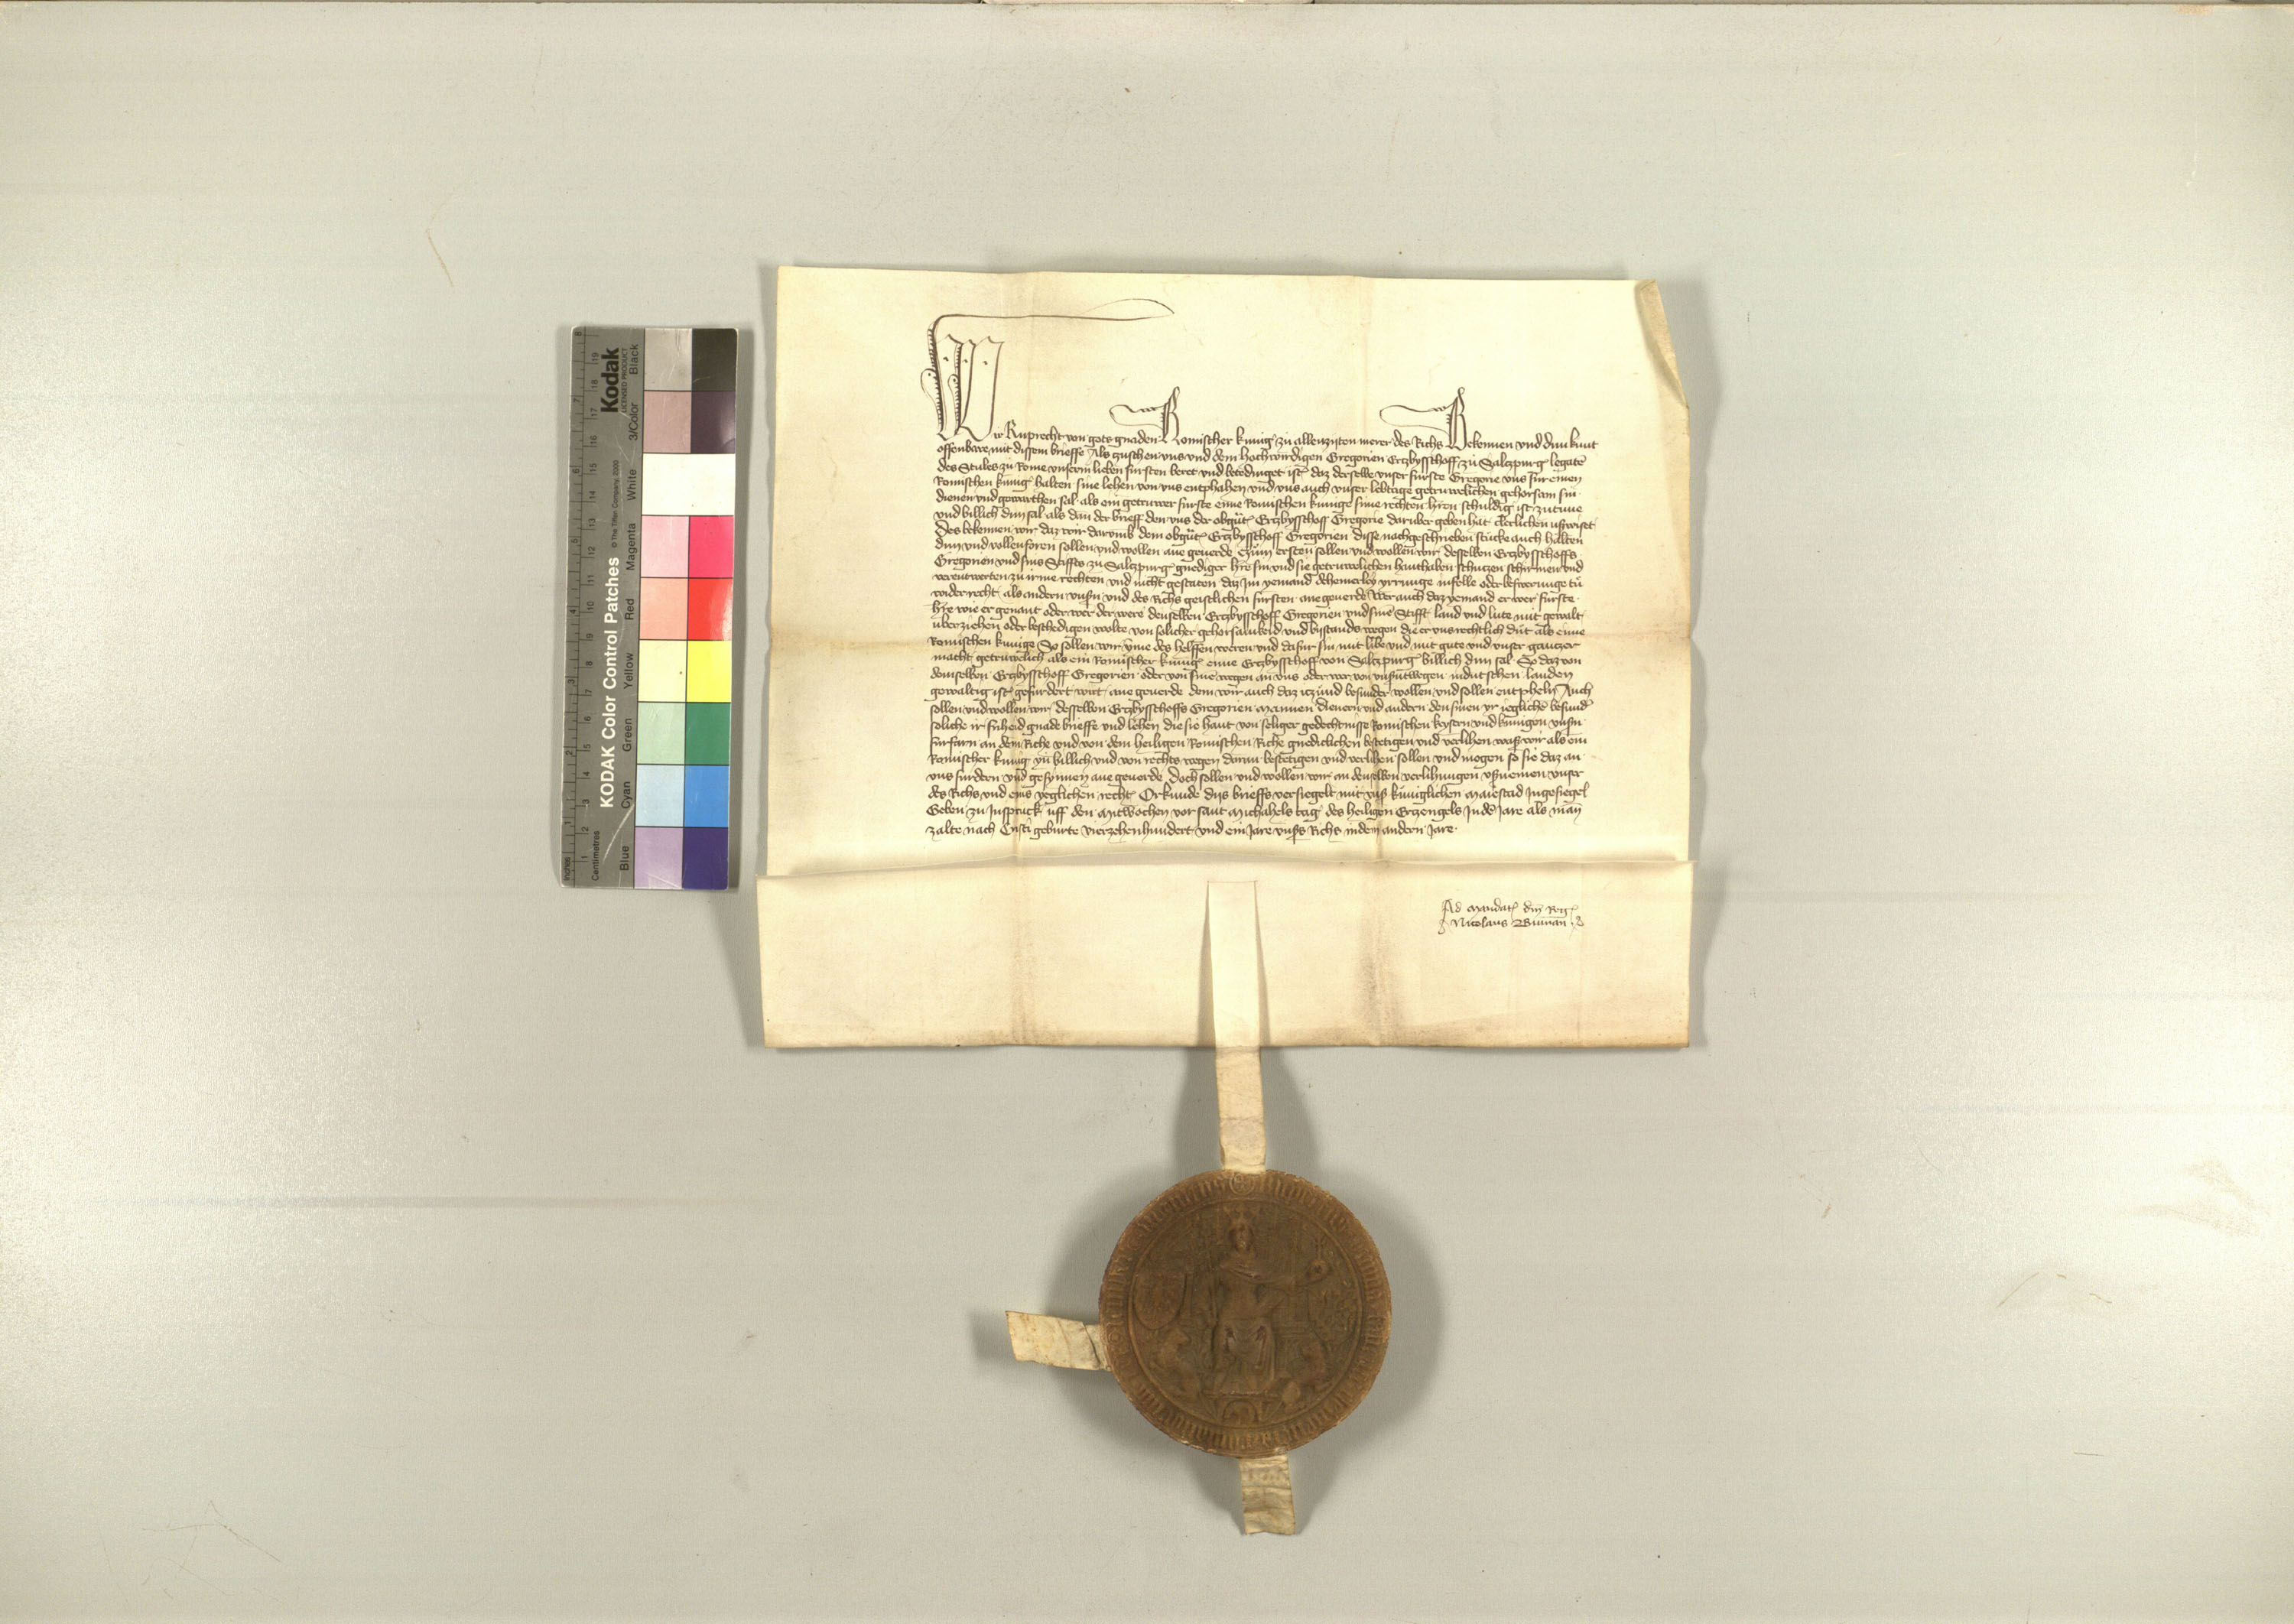 Wir Ruprecht von gots gnaden Romischer kunig zu allenzyten merer des Richs Bekennen und dun kunt
offenbare mit dissem brieffe Als zuschen uns und dem hochwirdigen Gregorien Ertzbysschoff zu Saltzpurg legate
des Stules zu Rome unserm lieben fursten beret und betedinget ist daz derselbe unser furste Gregorie uns fur einen
Romischen kunig halten sine lehen von uns entphahen und uns auch unser lebtage getruwelichen gehorsam sin
dienen und gewarthen sal als ein getruwer furste eime Romischen kunige sime rechten hren schuldig ist zu tune
und billich dun sal als dan der brieff den uns der obgnt Ertzbysschoff Gregorie daruber geben hat clerlichen ußwiset
Des bekennen wir daz wir darumb dem obgnt Ertzbysschoff Gregorien disse nachgeschrieben stucke auch halten
dun und vollenfuren sollen und wollen ane geverde Czum ersten sollen und wollen wir desselben Ertzbysschoffs
Gregorien und sins Stiffts zu Saltzpurg gnediger hre sin und sie getruwelichen hanthaben schutzen schirmen und
verentwerten zu irme rechten und nicht gestaten daz im yemand deheinerley yrrunge infelle oder beswerunge tu
wider recht als andern unsn und des Richs geistlichen fursten ane geverde Wer auch daz yemand er wer furste
hre wie er genant oder wer der were denselben Ertzbysschoff Gregorien und sine Stifft land und lute mit gewalt
uberziehen oder beschedigen wolte von solicher gehorsamkeid und bystands wegen die er uns rechtlich dut als eime
Romischen kunige So sollen wir yme des helffen weren und dafur sin mit libe und mit gute und unser gantzer
macht getruwelich als ein Romischer kunig eime Ertzbysschoff von Saltzpurg billich dun sal So daz von
demselben Ertzbysschoff Gregorien oder von sine wegen an uns oder wer von unsntwegen in dutschen landen
gewaltig ist gefurdert wirt ane geverde dem wir auch daz itzund besunder wollen und sollen entphelhn Auch
sollen und wollen wir desselben Ertzbysschoffs Gregorien mannen dienern und andern den sinen yr iegliche besund
soliche ir friheid gnade brieffe und lehen die sie hant von seliger gedechtnisse Romischen keysern und kunigen unsn
furfarn an dem Riche und von dem heiligen Romischen Riche gnediclichen bestetigen und verlihen waß wir als ein
Romischer kunig yn billich und von rechts wegen daran bestetigen und verlihen sollen und mogen so sie daz an
uns furdern und gesynnen ane geverde doch sollen und wollen wir an denselben verlihungen ußnemen unser
des Richs und eins yeglichen recht Orkunde diß brieffs versiegelt mit unsr kuniglichen maiestad Ingesiegel
Geben zu Inspruck uff den Mitwochen vor sant Michahels tag des heiligen Ertzengels In de Jare als man
zalte nach Cristi geburte vierzehenhundert und ein Jare unsrs Richs in dem andern Jare
Ad mandat dni Reg
Nicolaus Buman
KODAK Color Control Patches
© The Tiffen Company, 2000
Kodak
LICENSED PRODUCT
Blue Cyan Green Yellow Red Magenta White 3/Color Black
Inches 1 2 3 4 5 6 7 8
Centimetres 1 2 3 4 5 6 7 8 9 10 11 12 13 14 15 16 17 18 19